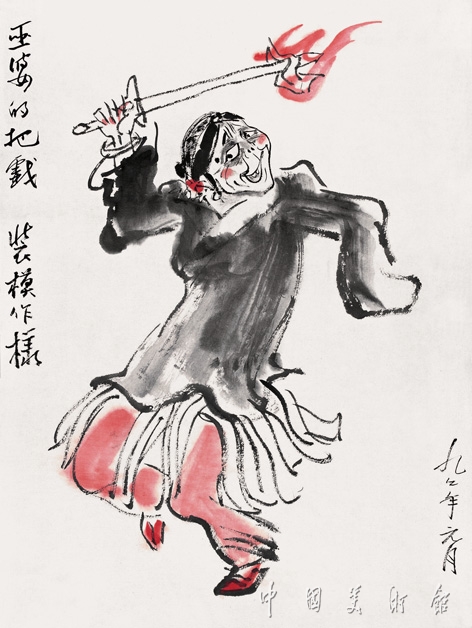 巫婆的把戲 裝模作樣
九二年元月
中國美術館